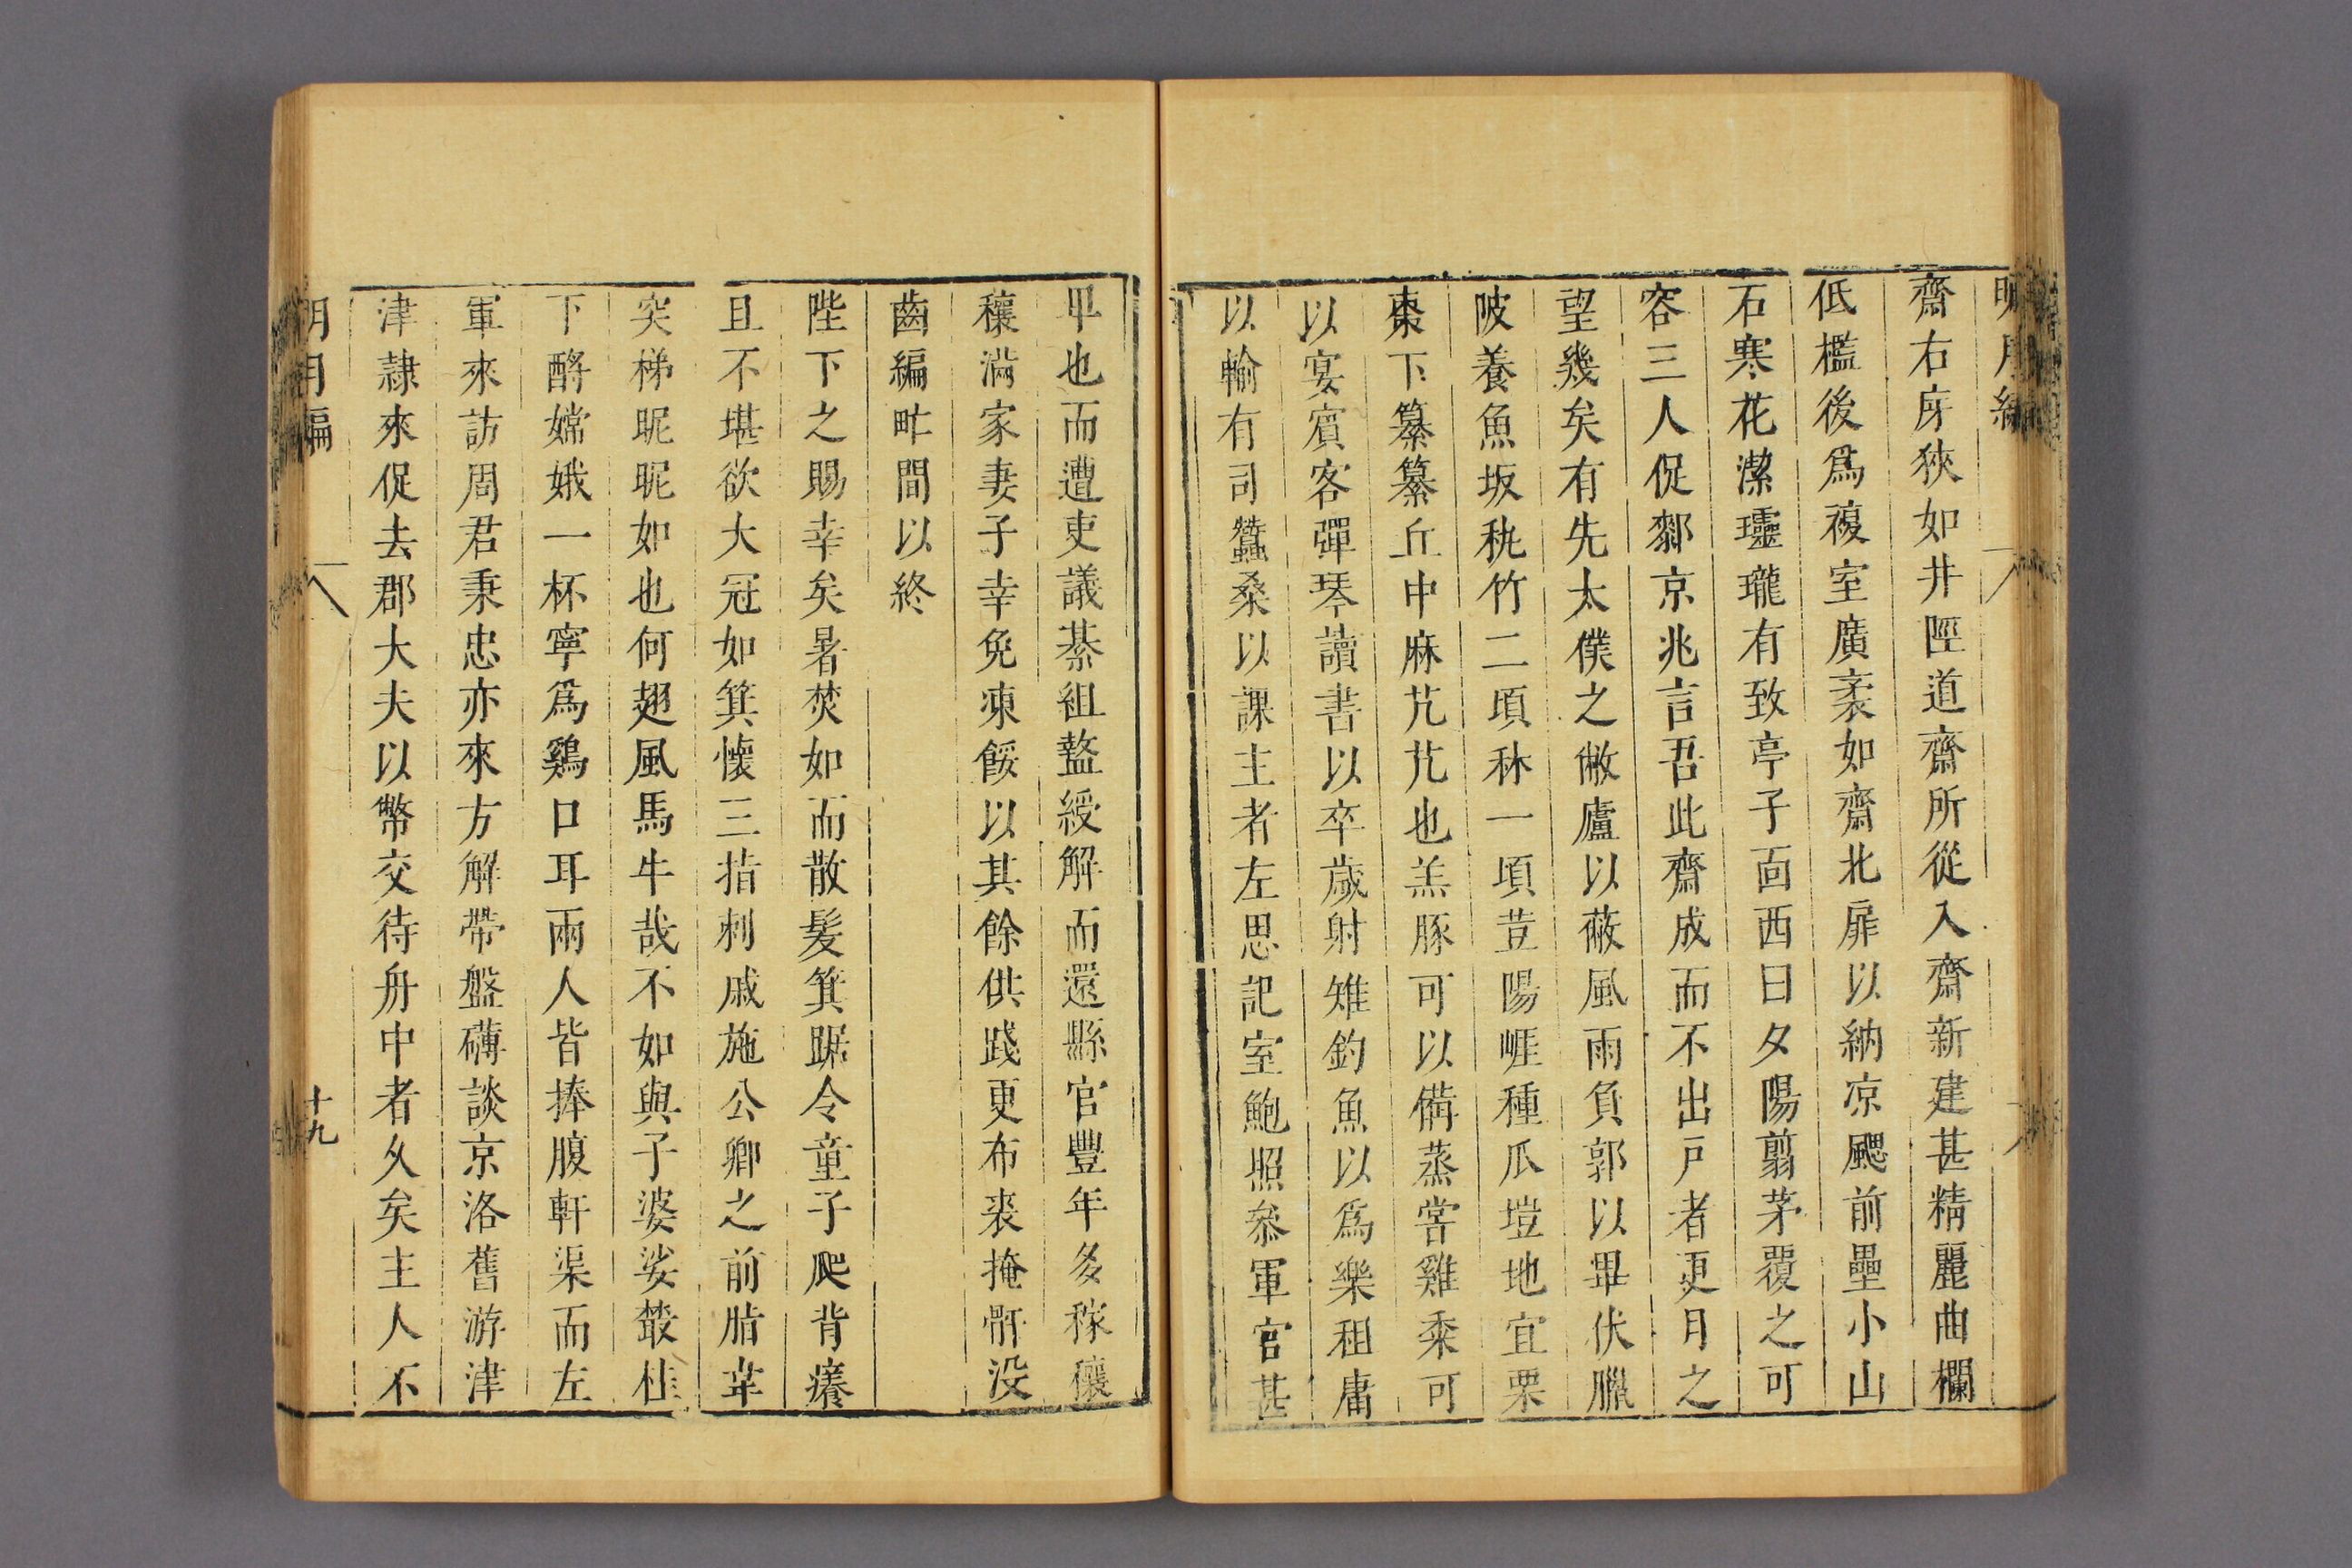 明月編
齋右序狹如井陘道齋所從入齋新建甚精麗曲欄
低檻後爲複室廣袤如齋北扉以納凉颸前壘小山
石寒花潔瓏有致亭子面西曰夕陽翦茅覆之可
容三人促鄰京兆言吾此齋成而不出戸者更月之
望幾矣有先太僕之敝廬以蔽風雨負郭以畢伏臘
陂養魚坂秇竹二頃秫一頃荳陽崕種瓜塏地宜栗
棗下纂纂丘中麻芃芃也羔豚可以備蒸嘗雞黍可
以宴賓客彈琴讀書以卒歲射雉釣魚以爲樂租庸
以輸有司蠶桑以課主者左思記室鮑照叅軍官甚
卑也而遭吏議綦組盭綬解而還縣官豐年多稼穰
穰滿家妻子幸免凍餒以其餘供踐更布裘掩骭没
齒編甿間以終
陛下之賜幸矣暑焚如而散髮箕踞令童子爬背癢
且不堪欲大冠如箕懷三指刺戚施公卿之前脂韋
突梯昵昵如也何翅風馬牛哉不如與子婆娑叢桂
下酹嫦娥一杯寧爲鷄口耳兩人皆捧腹軒渠而左
軍來訪周君秉忠亦來方解帶盤礴談京洛舊游津
津隷來促去郡大夫以幣交待舟中者久矣主人不
明月編
十九